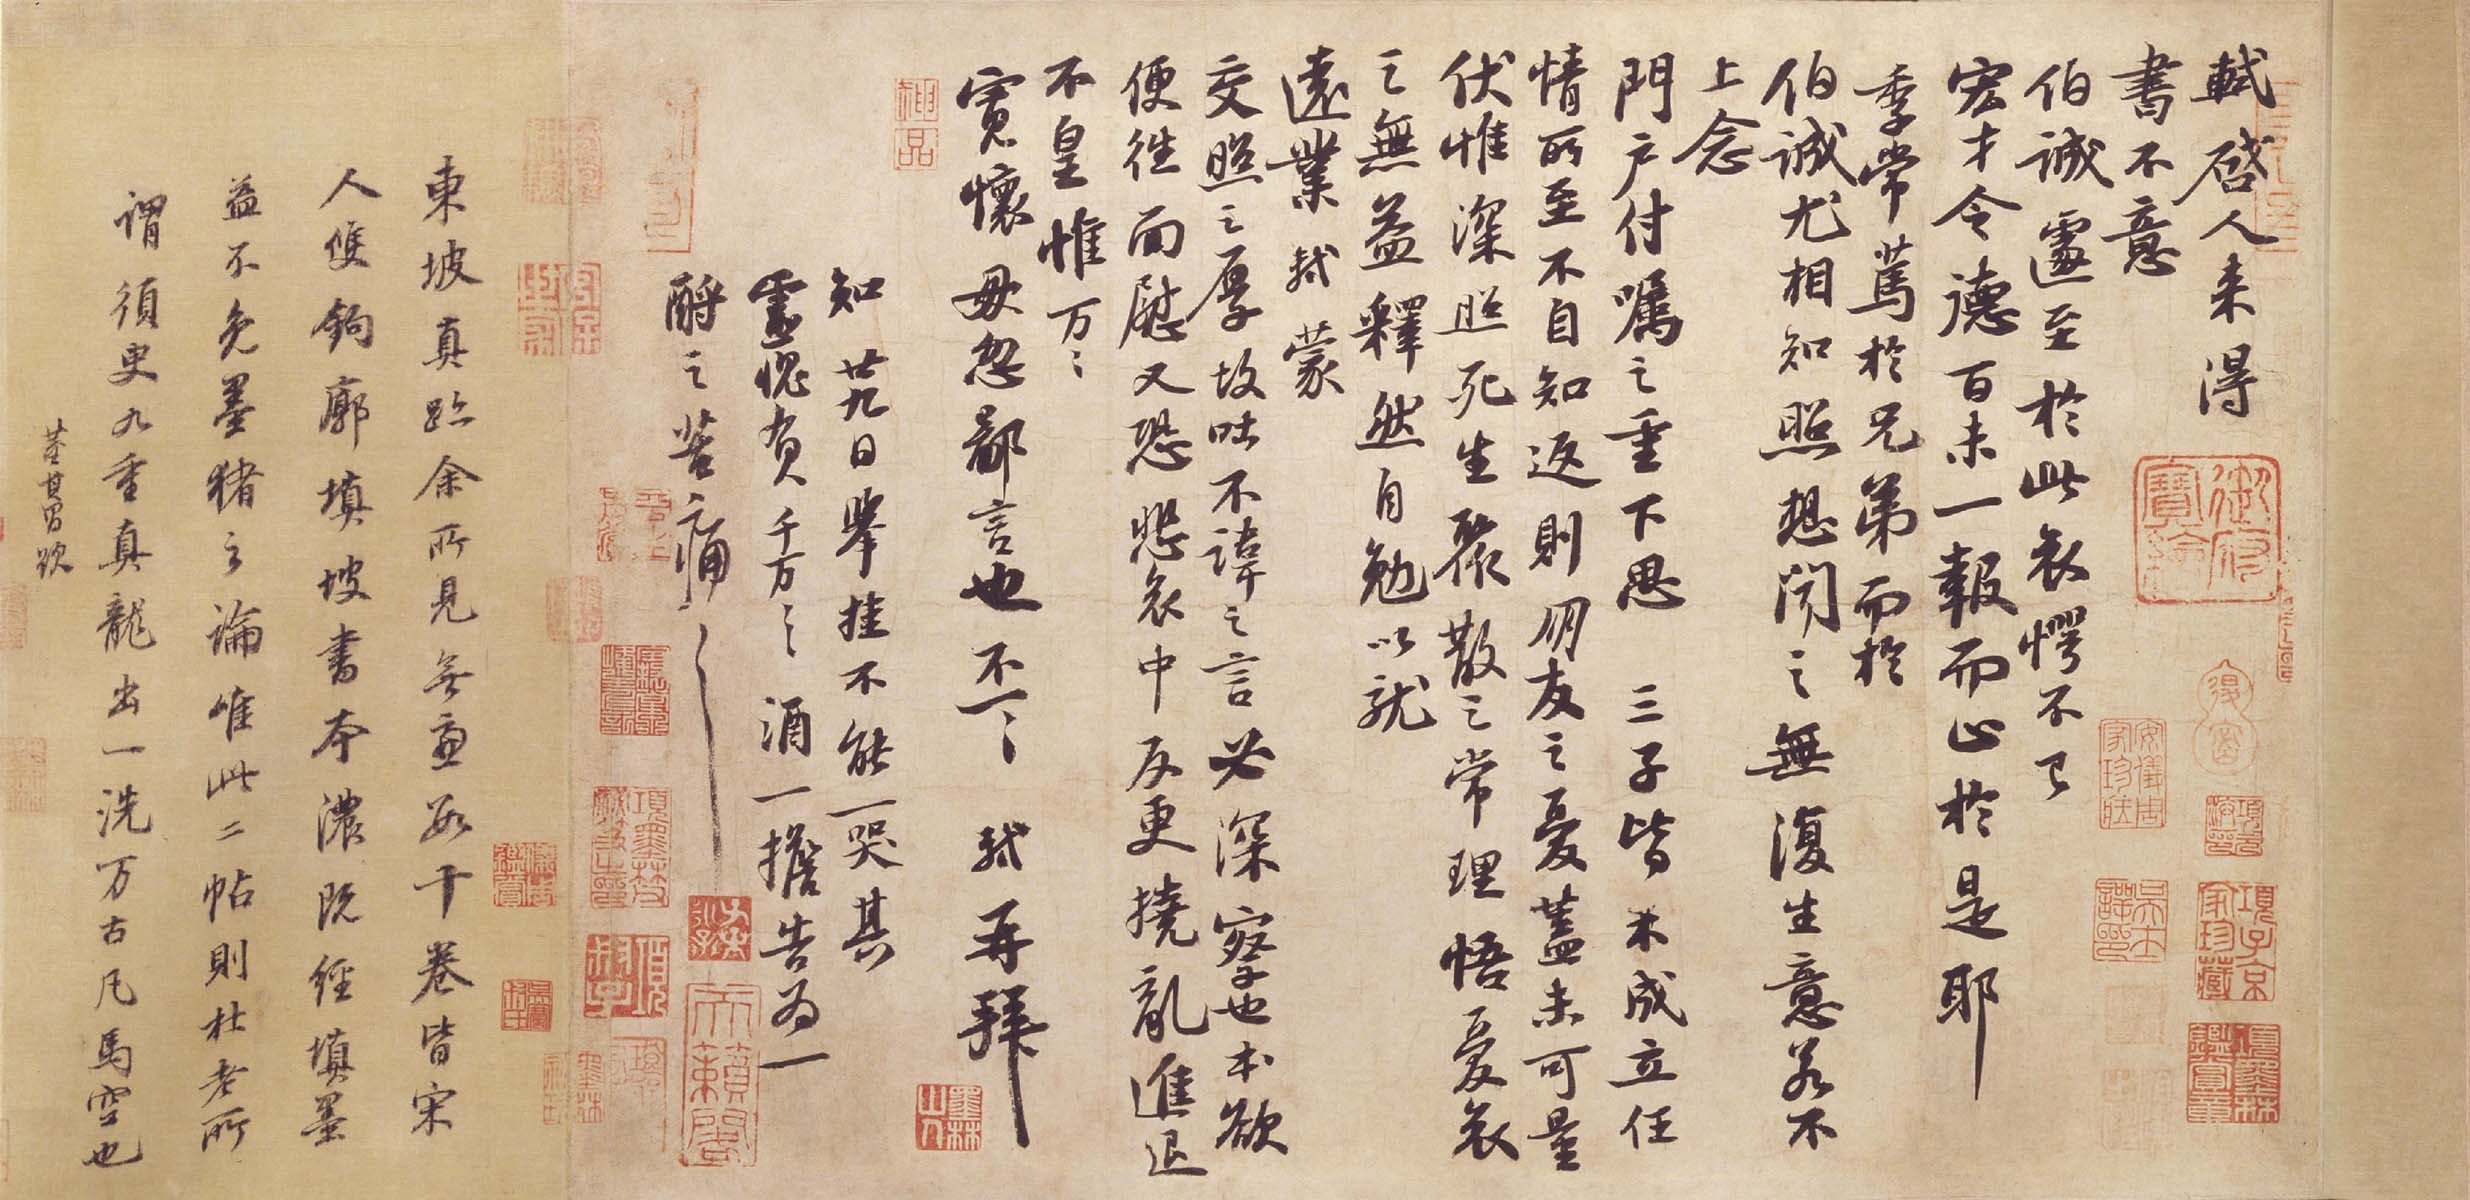 軾啓人来得
書不意
伯誠遽至於此哀愕不已
宏才令德百未一報而止於是耶
季常篤於兄弟而於
伯誠尤相知照想聞之無復生意若不
上念
門户付囑之重下思三子皆未成立任
情所至不自知返則朋友之憂蓋未可量
伏惟深照死生聚散之常理悟憂哀
之無益釋然自勉以就
遠業軾蒙
交照之厚故吐不諱之言必深察也本欲
便往面慰又恐悲哀中反更撓亂進退
不皇惟万〻
寬懷毋忽鄙言也不一〻軾再拜
知廿九日舉挂不能一哭其
靈愧負千万〻酒一擔告為一
酹之苦痛〻
神品
御府寶繪
項子京家珍藏
項墨林鑑賞章
安儀周家珍藏
墨林山人
天籟閣
東坡真跡余所見無慮數十卷皆宋
人雙鉤廓填坡書本濃既經填墨
益不免墨豬之論唯此二帖則杜老所
謂須臾九重真龍出一洗万古凡馬空也
董其昌跋